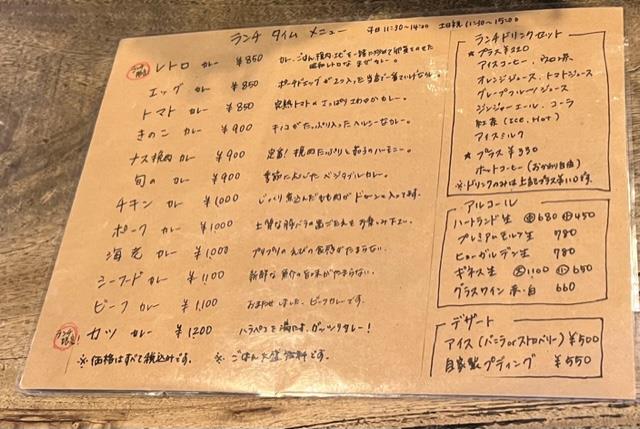 ランチ タイム メニュー 平日 11:30〜14:00 土日祝 11:30〜15:00
レトロ カレー ¥850
昭和レトロな まぜカレー。
エッグ カレー ¥850
トマト カレー ¥850 完熟トマトの さっぱり さわやかカレー。
きのこ カレー ¥900 キノコがたっぷり入ったヘルシーなカレー。
ナス挽肉 カレー ¥900 定番！挽肉たっぷりと茄子のハーモニー。
旬の カレー ¥900 季節に応じた ベジタブルカレー。
チキン カレー ¥1000 じっくり煮込んだもも肉が ドーンと入ってます。
ポーク カレー ¥1,000 上質な豚バラの
海老 カレー ¥1,000 プリプリの えびの食感がたまらない。
シーフード カレー ¥1100 新鮮な 魚介の旨味がたまらない。
ビーフ カレー ¥1,100 おまたせしました、ビーフカレーです。
ランチ限定！ カツ カレー ¥1200 ハラペコを満たす、ガッツリカレー！
※価格はすべて税込みです。 ※ごはん大盛無料です。
ランチドリンクセット
★プラス¥220
アイスコーヒー、ウーロン茶
オレンジジュース、トマトジュース
グレープフルーツジュース
ジンジャーエール、コーラ
紅茶 (Ice, Hot)
アイスミルク
★プラス¥330
ホットコーヒー (おかわり自由)
※ドリンクのみは上記プラス¥110です。
アルコール
ハートランド生 大680 中450
プレミアムモルツ生 780
ヒューガルデン生 780
ギネス生 大1100 小650
グラスワイン 赤・白 660
デザート
アイス (バニラorストロベリー) ¥500
自家製プディング ¥550